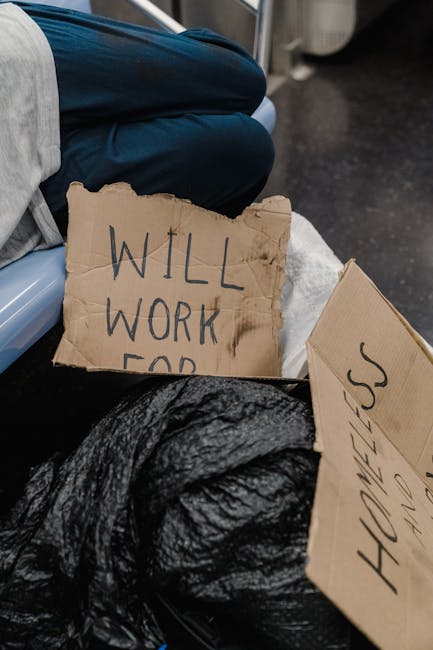 WILL
WORK
FOR
HOMELESS
AND